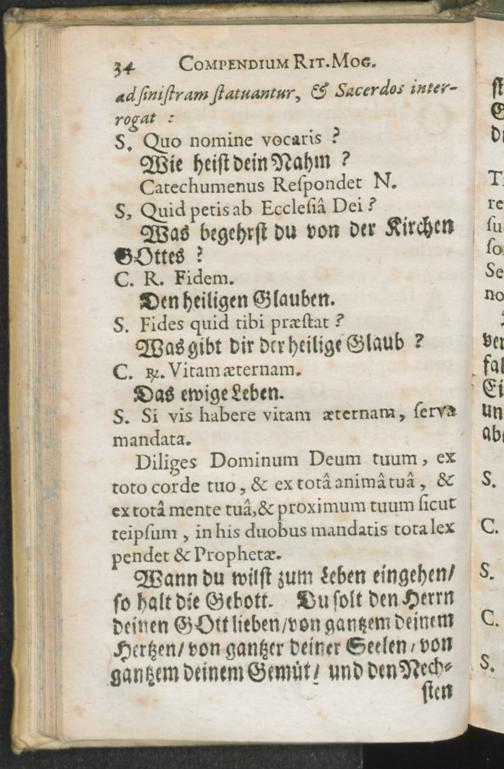 34 COMPENDIUM RIT. MOG.
ad sinistram statuantur, & Sacerdos inter-
rogat :
S. Quo nomine vocaris ?
Wie heist dein Nahm ?
Catechumenus Respondet N.
S, Quid petis ab Ecclesiâ Dei ?
Was begehrst du von der Kirchen
GOttes ?
C. R. Fidem.
Den heiligen Glauben.
S. Fides quid tibi præstat ?
Was gibt dir der heilige Glaub ?
C. ℟. Vitam æternam.
Das ewige Leben.
S. Si vis habere vitam æternam, serva
mandata.
Diliges Dominum Deum tuum, ex
toto corde tuo, & ex totâ animâ tuâ, &
ex totâ mente tuâ, & proximum tuum sicut
teipsum, in his duobus mandatis tota lex
pendet & Prophetæ.
Wann du wilst zum Leben eingehen/
so halt die Gebott. Du solt den Herrn
deinen GOtt lieben/von gantzem deinem
Hertzen/von gantzer deiner Seelen/von
gantzem deinem Gemüt/ und den Nech-
sten